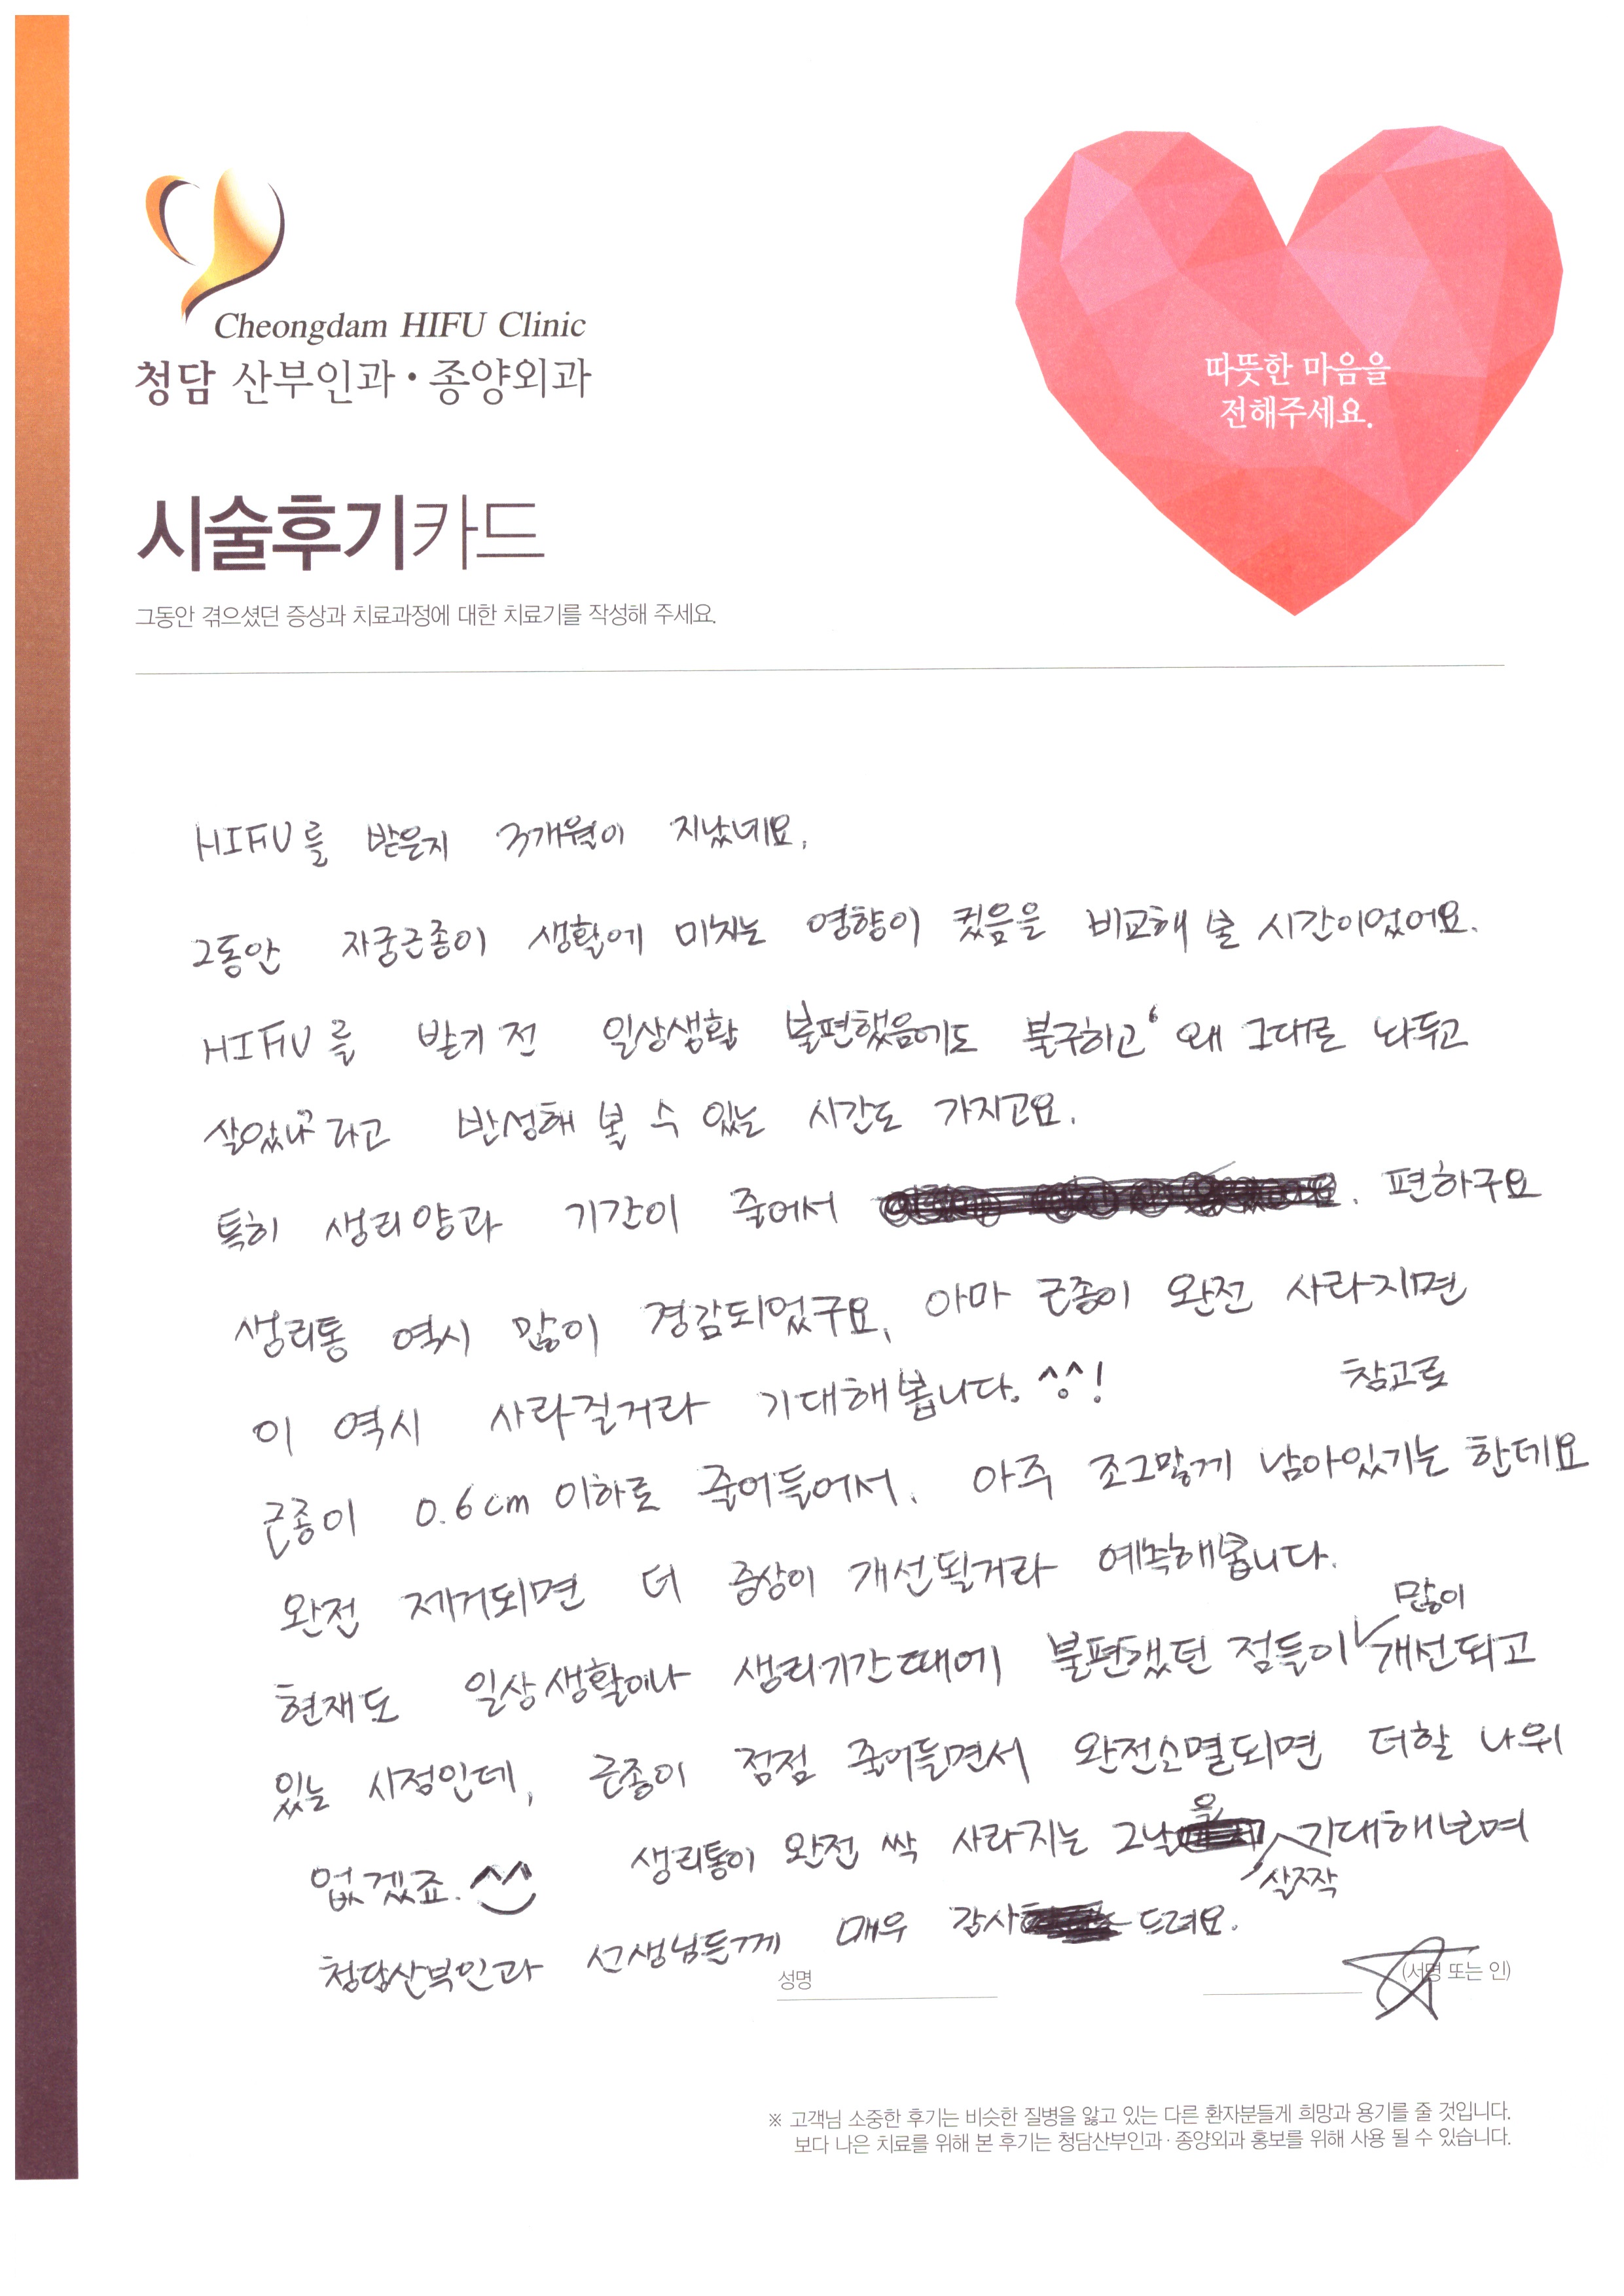 Cheongdam HIFU Clinic
청담 산부인과·종양외과
따뜻한 마음을
전해주세요.
시술후기카드
그동안 겪으셨던 증상과 치료과정에 대한 치료기를 작성해 주세요.
HIFU를 받은지 3개월이 지났네요.
그동안 자궁근종이 생활에 미치는 영향이 컸음을 비교해 볼 시간이었어요.
HIFU를 받기 전 일상생활 불편했음에도 불구하고 '왜 그대로 놔두고
살았나'라고 반성해 볼 수 있는 시간도 가지고요.
특히 생리양과 기간이 줄어서 . 편하구요
생리통 역시 많이 경감되었구요, 아마 근종이 완전 사라지면
이 역시 사라질거라 기대해봅니다. ^^! 참고로
근종이 0.6cm 이하로 줄어들어서, 아주 조그맣게 남아있기는 한데요
완전 제거되면 더 증상이 개선될거라 예측해봅니다.
현재도 일상생활이나 생리기간때에 불편했던 점들이 많이 개선되고
있는 시점인데, 근종이 점점 줄어들면서 완전소멸되면 더할 나위
없겠죠. ^^ 생리통이 완전 싹 사라지는 그날을 살짝 기대해보며
청담산부인과 선생님들께 매우 감사 드려요.
성명 (서명 또는 인)
※ 고객님 소중한 후기는 비슷한 질병을 앓고 있는 다른 환자분들게 희망과 용기를 줄 것입니다.
보다 나은 치료를 위해 본 후기는 청담산부인과·종양외과 홍보를 위해 사용 될 수 있습니다.